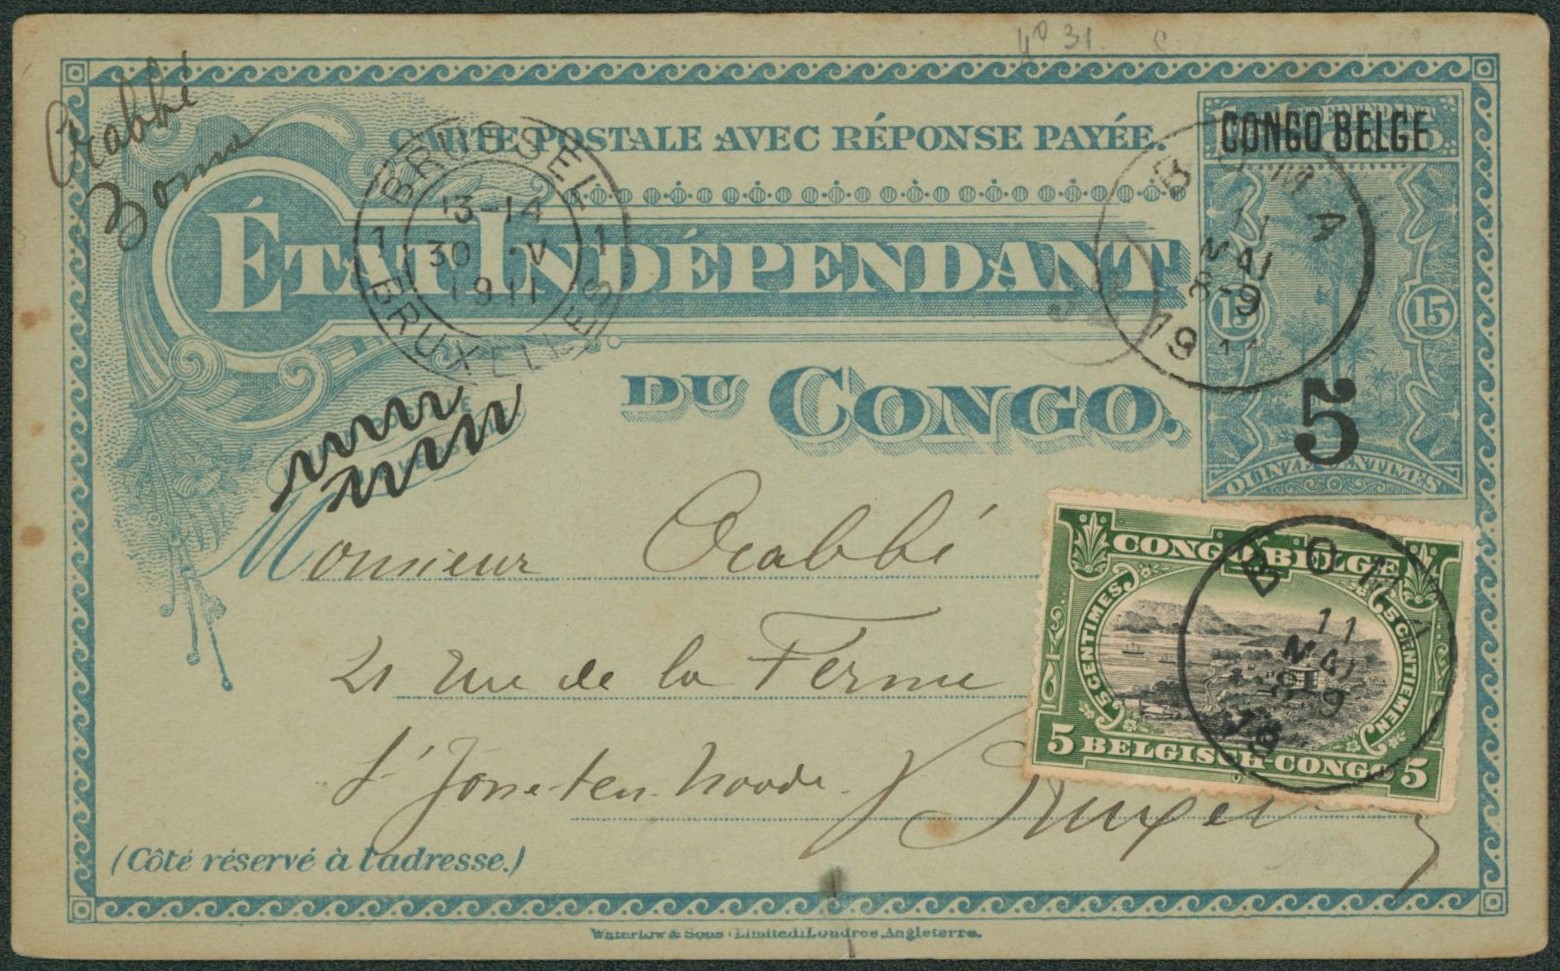 4D 31. C
Crabbé
Boma
CARTE POSTALE AVEC RÉPONSE PAYÉE.
ÉTAT INDÉPENDANT
DU CONGO.
BRUSSEL
1 13-14 1
30 V
1911
BRUXELLES
BOMA
11
MAI
8-9
19
CONGO BELGE
15 15
5
QUINZE CENTIMES
Monsieur Crabbé
21 rue de la Ferme
St Josse-ten-Noode
CONGO BELGE
5 CENTIMES
5 CENTIEMEN
5 BELGISCH-CONGO 5
BOMA
11
MAI
8-9
19
(Côté réservé à l'adresse.)
Waterlow & Sons Limited, Londres, Angleterre.